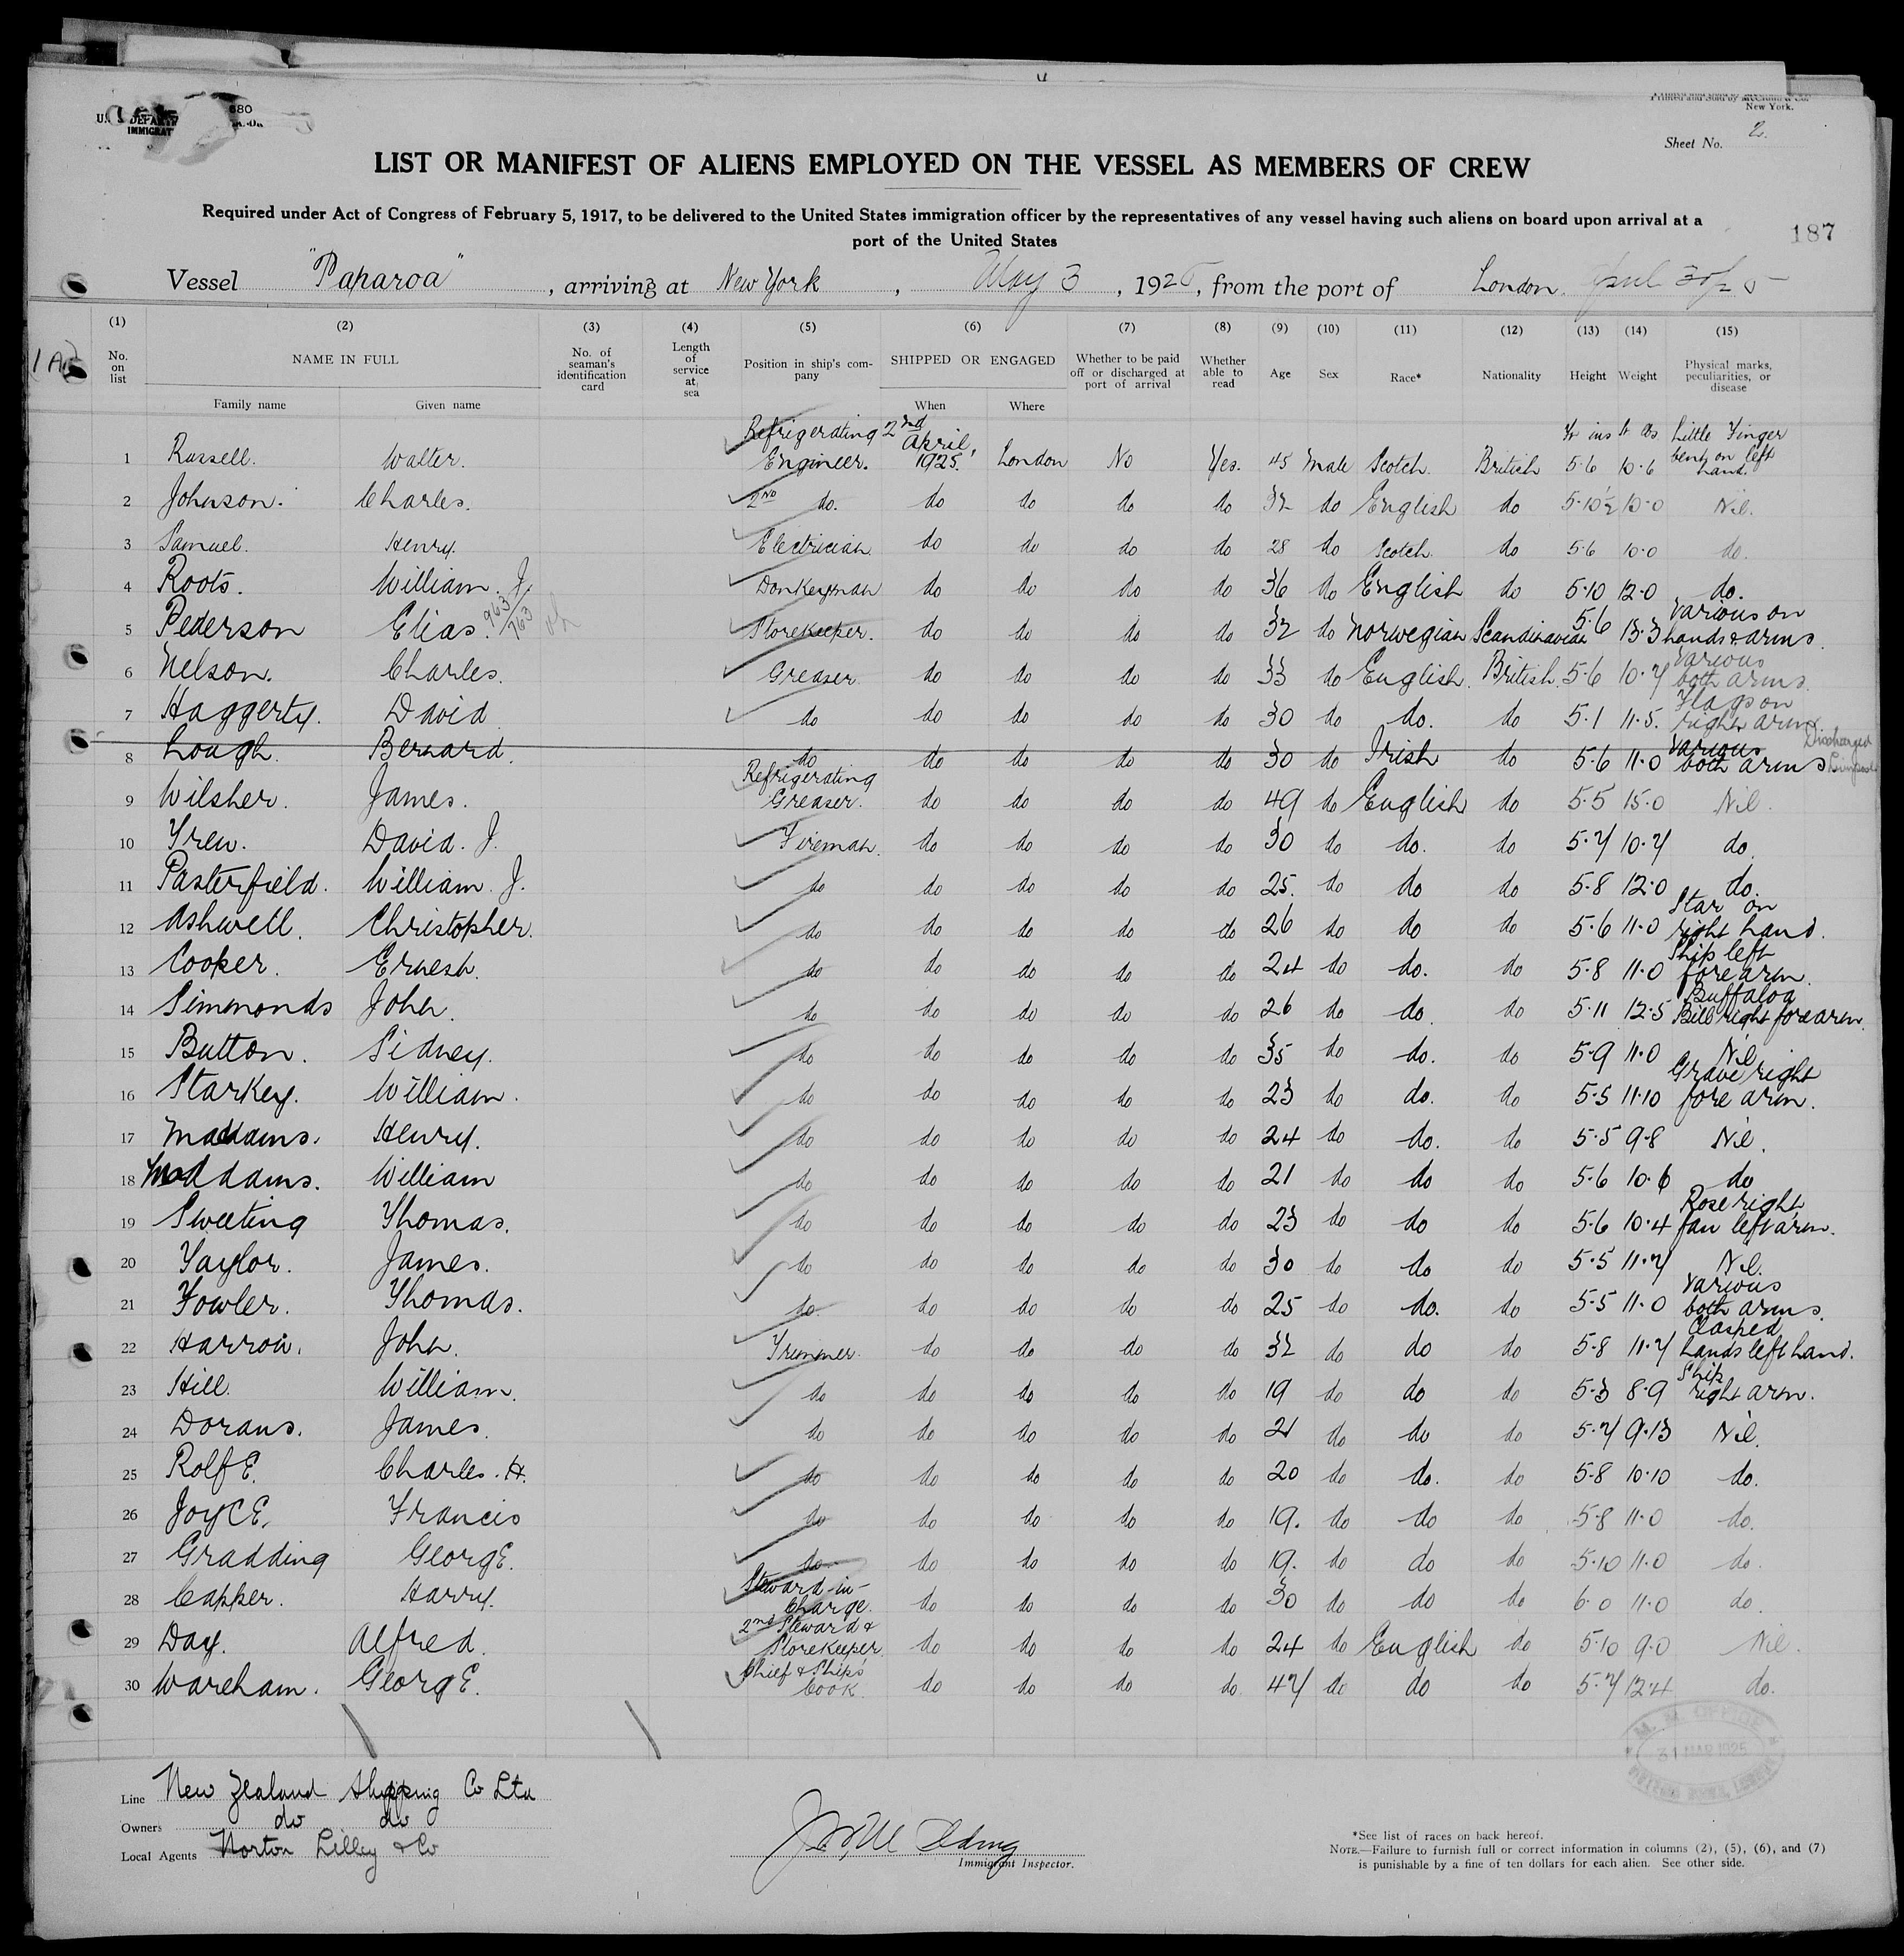 Printed and Sold by McClunn & Co.
New York.
Sheet No. 2.
LIST OR MANIFEST OF ALIENS EMPLOYED ON THE VESSEL AS MEMBERS OF CREW
Required under Act of Congress of February 5, 1917, to be delivered to the United States immigration officer by the representatives of any vessel having such aliens on board upon arrival at a
port of the United States
187
Vessel "Paparoa", arriving at New York, May 3, 1925, from the port of London. April 30/25
(1) (2) (3) (4) (5) (6) (7) (8) (9) (10) (11) (12) (13) (14) (15)
No. on list NAME IN FULL No. of seaman's identification card Length of service at sea Position in ship's company SHIPPED OR ENGAGED Whether to be paid off or discharged at port of arrival Whether able to read Age Sex Race* Nationality Height Weight Physical marks, peculiarities, or disease
Family name Given name When Where
1 Russell. Walter. Refrigerating Engineer. 2nd April, 1925. London No Yes. 45 Male Scotch. British ft ins 5·6 st lbs 10·6 Little Finger bent on left hand.
2 Johnson. Charles. 2nd do. do do do do 32 do English do 5·10½ 10·0 Nil.
3 Samuel. Henry. Electrician do do do do 28 do Scotch. do 5·6 10·0 do.
4 Roots. William. J. Donkeyman do do do do 36 do English do 5·10 12·0 do.
5 Pederson Elias. 963/763 Storekeeper. do do do do 32 do Norwegian Scandinavian 5·6 13·3 Various on hands & arms.
6 Nelson. Charles. Greaser do do do do 33 do English. British. 5·6 10·7 Various both arms.
7 Haggerty. David do do do do do 30 do do. do 5·1 11·5. Flags on right arm.
8 Lough. Bernard. do do do do do 30 do Irish do 5·6 11·0 Various both arms. Discharged
9 Wilsher. James. Refrigerating Greaser. do do do do 49 do English do 5·5 15·0 Nil.
10 Trew. David. J. Fireman. do do do do 30 do do. do 5·7 10·7 do.
11 Pasterfield. William. J. do do do do do 25. do do do 5·8 12·0 do.
12 Ashwell. Christopher. do do do do do 26 do do do 5·6 11·0 Star on right hand.
13 Cooper. Ernest. do do do do do 24 do do. do 5·8 11·0 Ship left fore arm.
14 Simmonds John. do do do do do 26 do do. do 5·11 12·5 Buffaloa Bill right fore arm.
15 Button. Sidney. do do do do do 35 do do. do 5·9 11·0 Nil
16 Starkey. William. do do do do do 23 do do. do 5·5 11·10 Grave right fore arm.
17 Maddams. Henry. do do do do do 24 do do. do 5·5 9·8 Nil.
18 Maddams. William do do do do do 21 do do do 5·6 10·6 do
19 Sweeting Thomas. do do do do do 23 do do do 5·6 10·4 Rose right, fan left arm.
20 Taylor. James. do do do do do 30 do do do 5·5 11·7 Nil.
21 Fowler. Thomas. do do do do do 25 do do. do 5·5 11·0 Various both arms.
22 Harrow. John. Trimmer. do do do do 32 do do do 5·8 11·7 Clasped hands left hand.
23 Hill. William. do do do do do 19 do do do 5·3 8·9 Ship right arm.
24 Dorans. James. do do do do do 21 do do do 5·7 9·13 Nil.
25 RolfE. Charles. H. do do do do do 20 do do. do 5·8 10·10 do.
26 JoycE. Francis do do do do do 19. do do do 5·8 11·0 do.
27 Gradding GeorgE. do do do do do 19. do do do 5·10 11·0 do.
28 Capper. Harry. Steward-in-Charge. do do do do 30 do do do 6·0 11·0 do.
29 Day. Alfred. 2nd Steward & Storekeeper. do do do do 24 do English do 5·10 9·0 Nil.
30 Wareham. GeorgE. Chief & Ships' Cook. do do do do 47 do do do 5·7 12·4 do.
M. M. OFFICE
31 MAR 1925
Line New Zealand Shipping Co Ltd
Owners do do
Local Agents Norton Lilley & Co
Immigrant Inspector.
*See list of races on back hereof.
NOTE.—Failure to furnish full or correct information in columns (2), (5), (6), and (7)
is punishable by a fine of ten dollars for each alien. See other side.